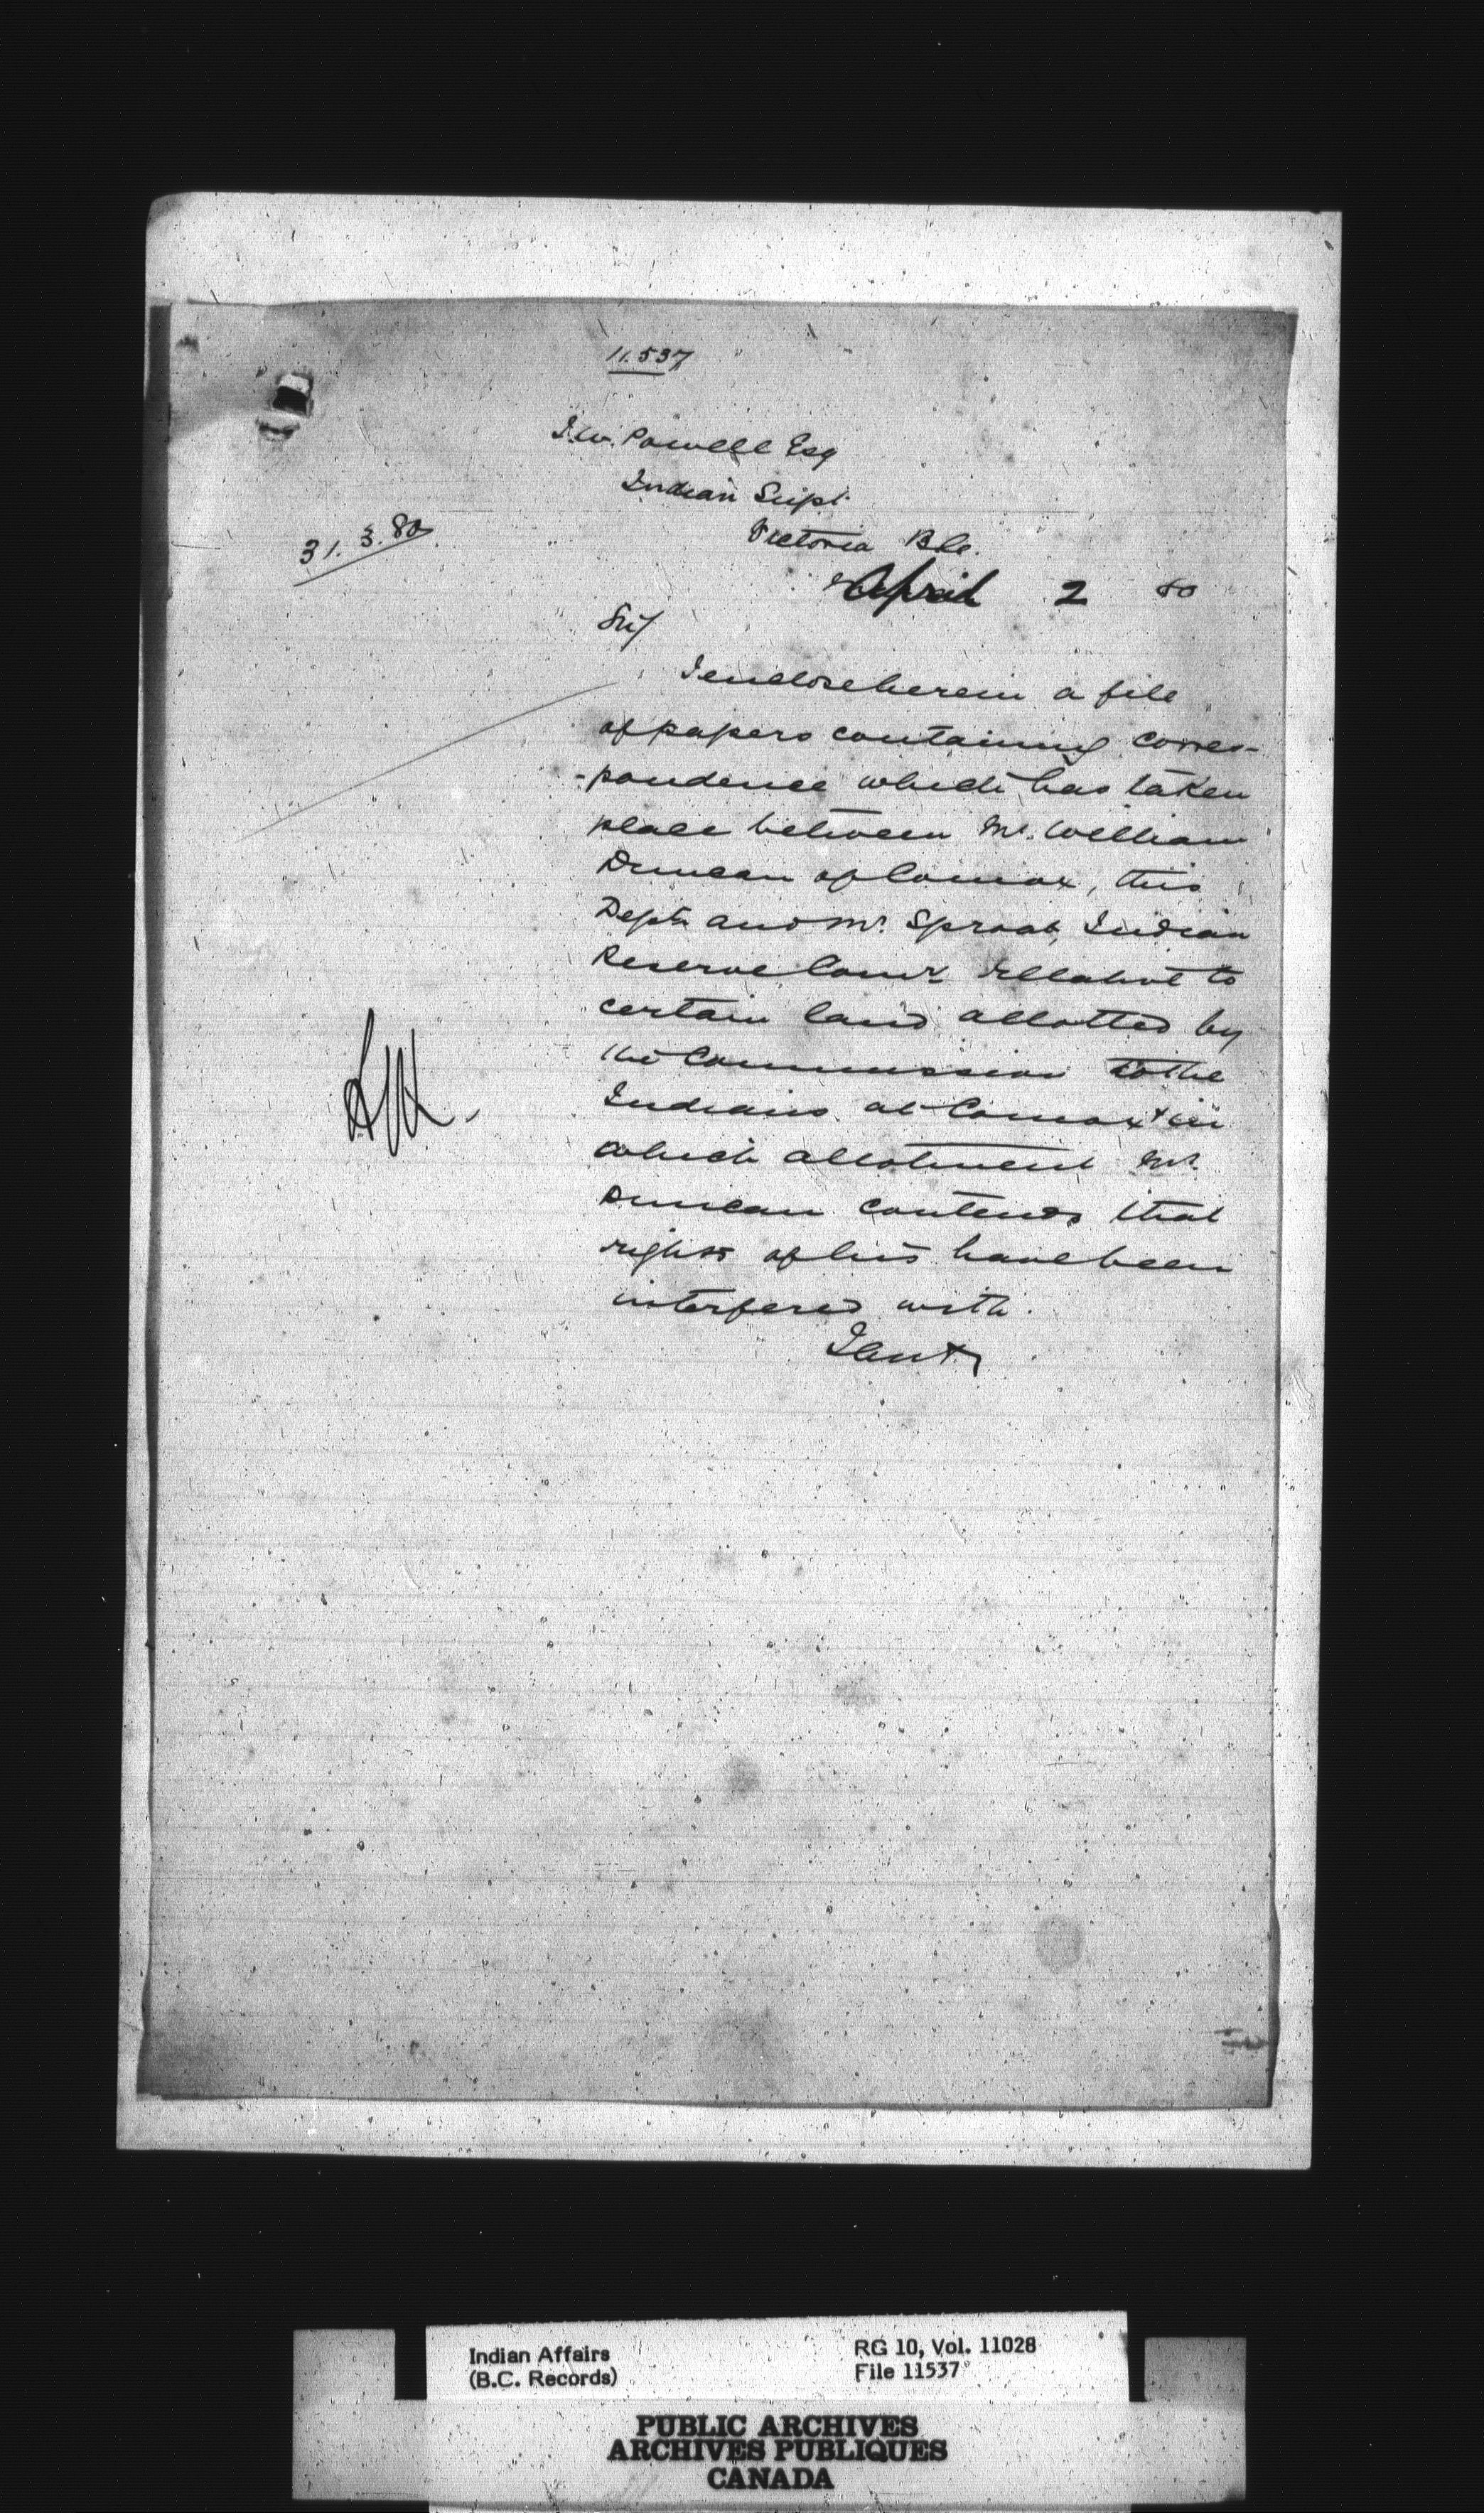 11.537
I.W. Powell Esq
Indian Supt.
Victoria B.C.
31.3.80
April 2 80
Sir/
I enclose herein a file
of papers containing corres-
-pondence which has taken
place between Mr. William
Duncan of Comox, this
Dept. and Mr. Sproat, Indian
Reserve Comr. relative to
certain land allotted by
the Commission to the
Indians at Comox & in
which allotment Mr.
Duncan contends that
rights of his have been
interfered with.
Indian Affairs
(B.C. Records)
RG 10, Vol. 11028
File 11537
PUBLIC ARCHIVES
ARCHIVES PUBLIQUES
CANADA